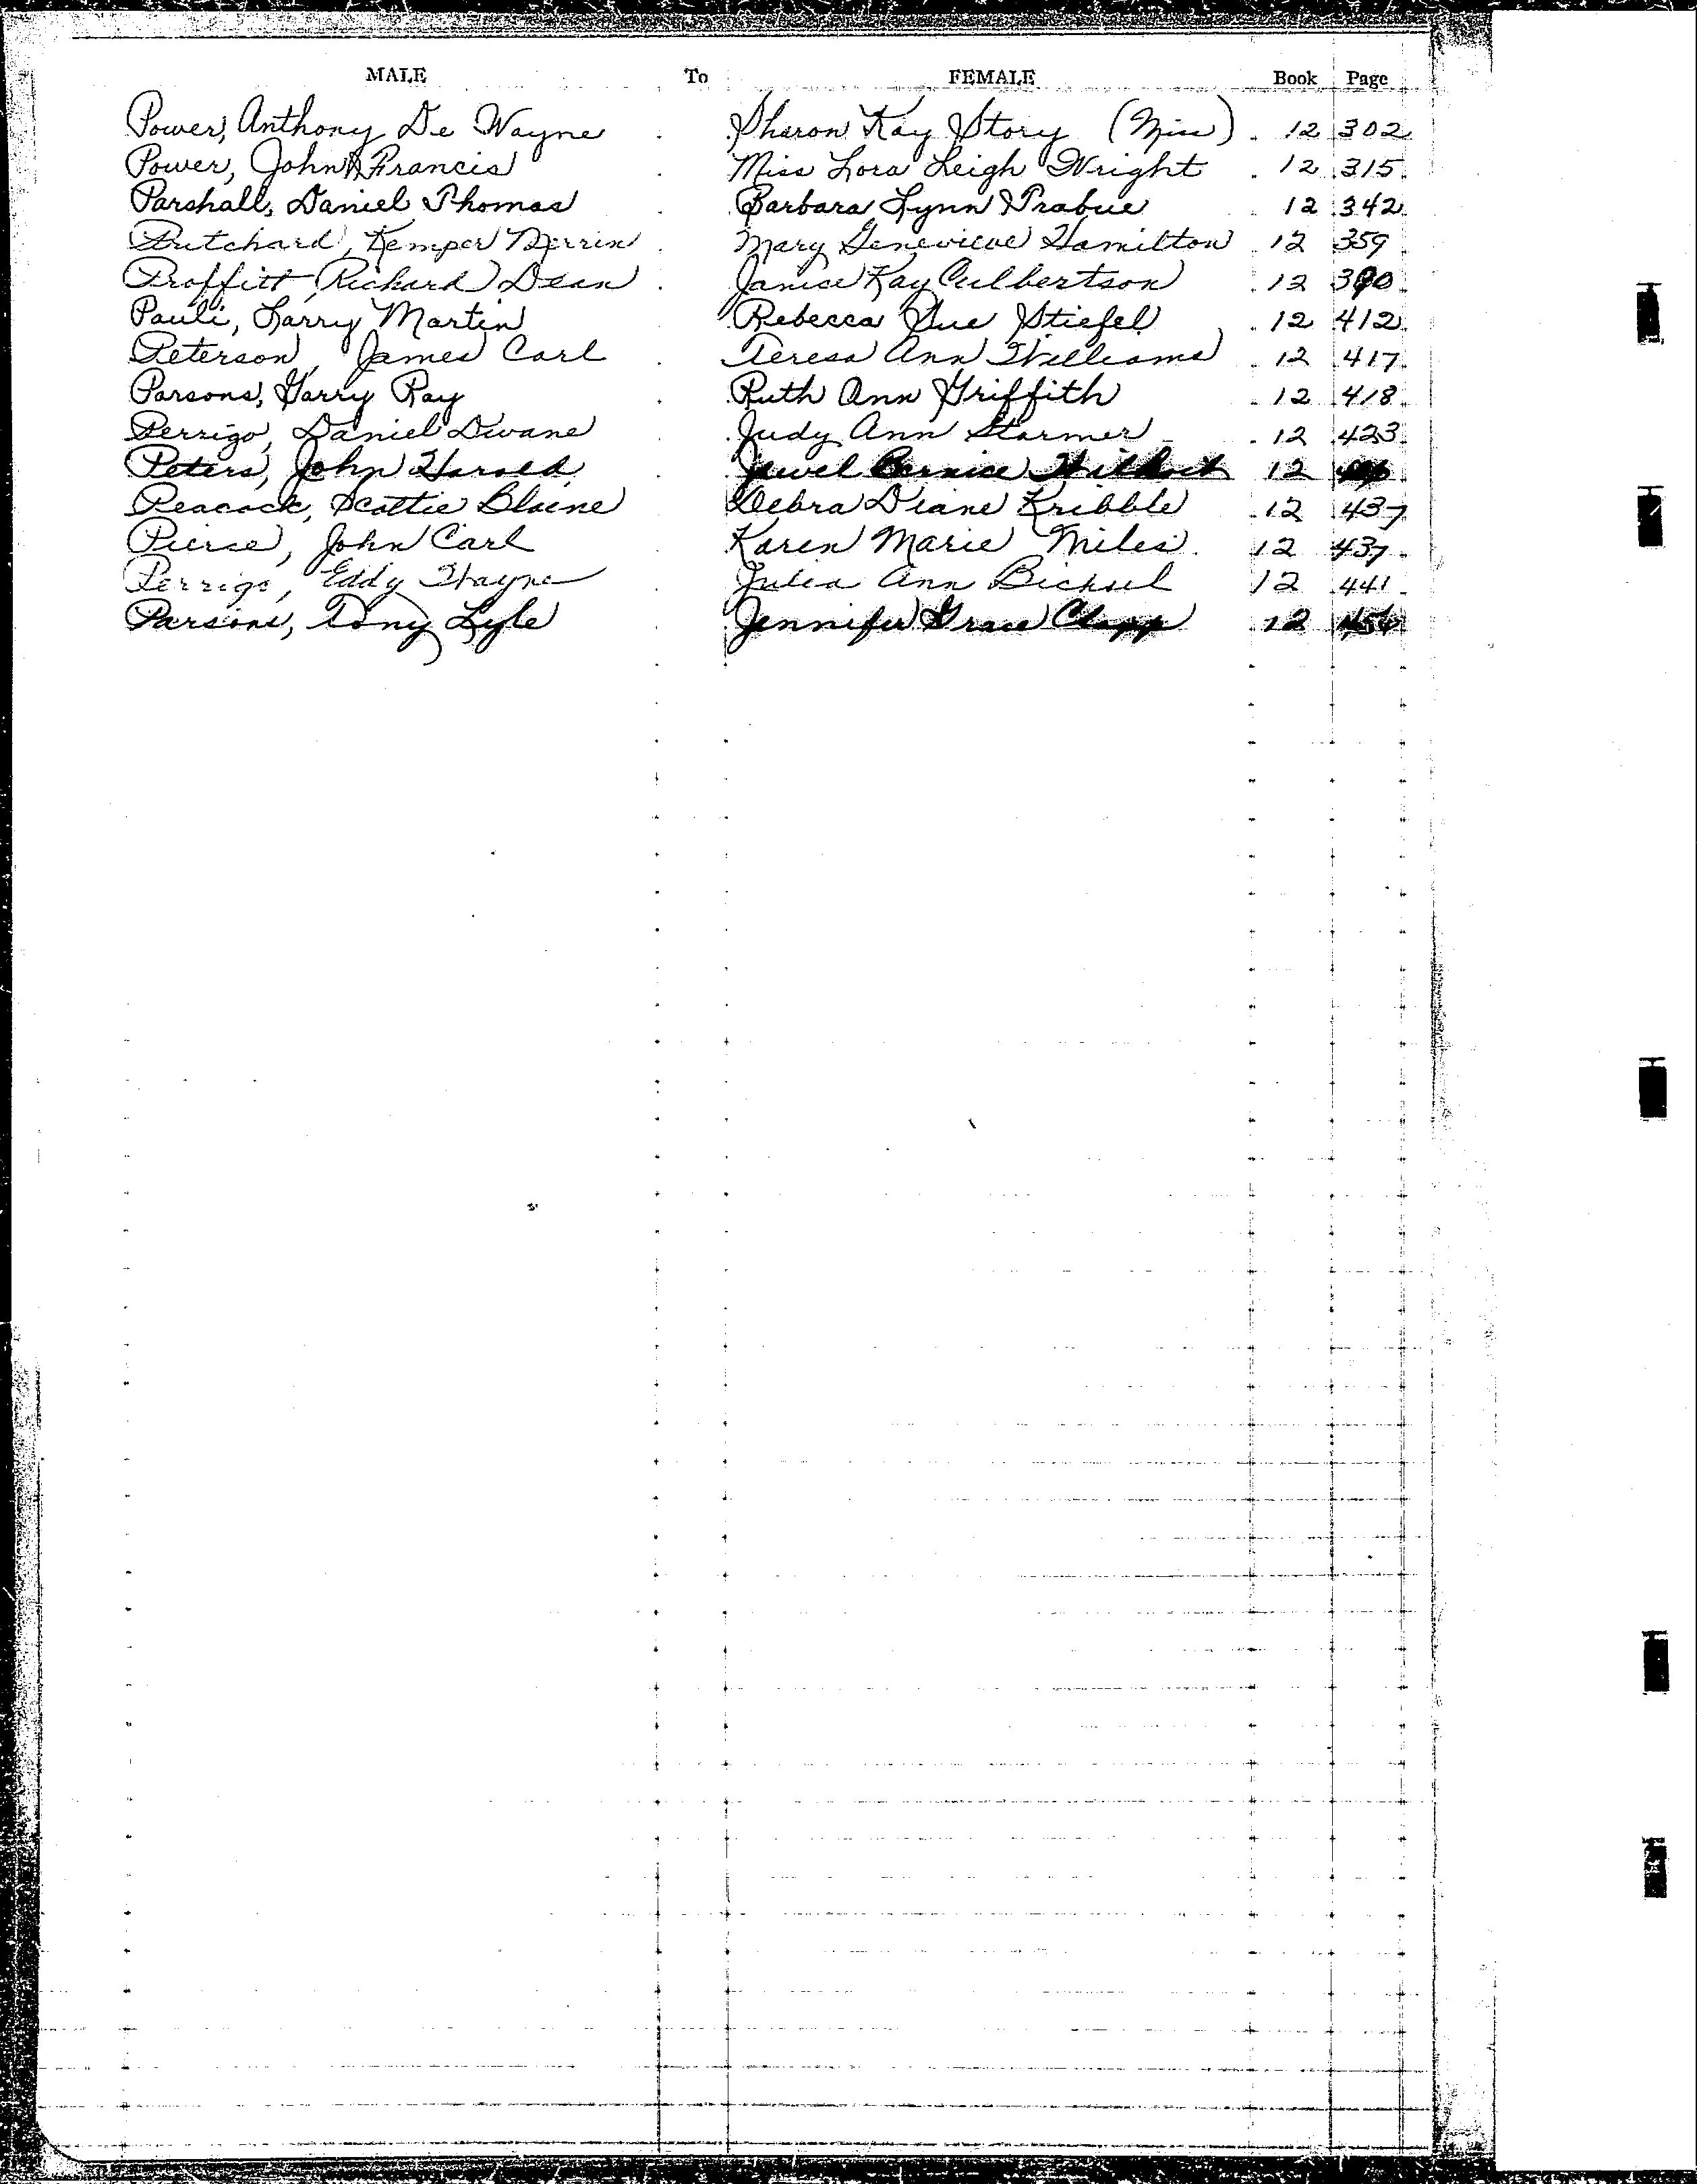 MALE To FEMALE Book Page
Power, Anthony De Wayne Sharon Kay Story (Miss) 12 302
Power, John Francis Miss Lora Leigh Wright 12 315
Parshall, Daniel Thomas Barbara Lynn Prabue 12 342
Pritchard, Kemper Derrin Mary Genevieve Hamilton 12 359
Proffitt, Richard Dean Janice Kay Culbertson 12 390
Pauli, Larry Martin Rebecca Sue Stiefel 12 412
Peterson, James Carl Teresa Ann Williams 12 417
Parsons, Garry Ray Ruth Ann Griffith 12 418
Perrigo, Daniel Dwane Judy Ann Starmer 12 423
Peters, John Harold Jewel Bernice 12
Peacock, Scottie Blaine Debra Diane Kribble 12 437
Pierce, John Carl Karen Marie Miles 12 437
Perrigo, Eddy Wayne Julia Ann Bickel 12 441
Parsons, Tony Lyle Jennifer Grace Clapp 12 454